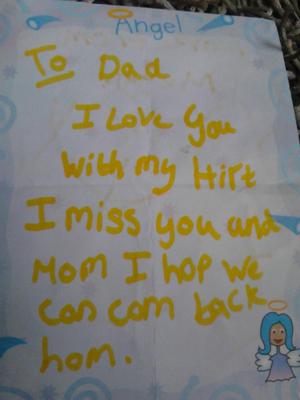 Angel
To Dad
I Love You
with my Hirt
I miss you and
Mom I hop we
can com back
hom.